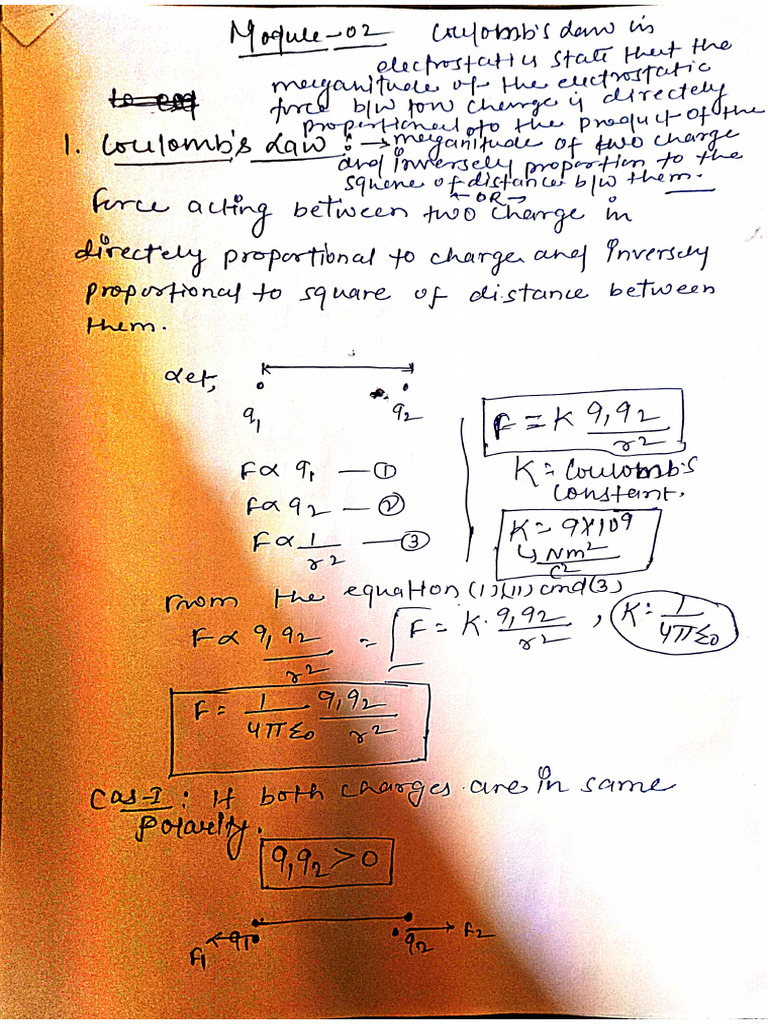 Module-02
Coulomb's Law in
electrostatics state that the
meganitude of the electrostatic
force b/w tow charge is directely
proportional to the product of the
1. Coulomb's Law : → meganitude of two charge
and inversely proportion to the
square of distance b/w them.
← OR →
force acting between two charge in
directely proportional to charge and inversely
proportional to square of distance between
them.
Let,
q₁ q₂
F ∝ q₁ — ①
F ∝ q₂ — ②
F ∝ 1/r² — ③
F = K q₁q₂/r²
K = Coulomb's
constant.
K = 9×10⁹
↳ Nm²/C²
From the equation (1), (11) and (3)
F ∝ q₁q₂/r² = F = K. q₁q₂/r² , K = 1/4πε₀
F = 1/4πε₀ q₁q₂/r²
Cas-I : If both charges are in same
polarity.
q₁q₂ > 0
F₁ q₁ q₂ F₂